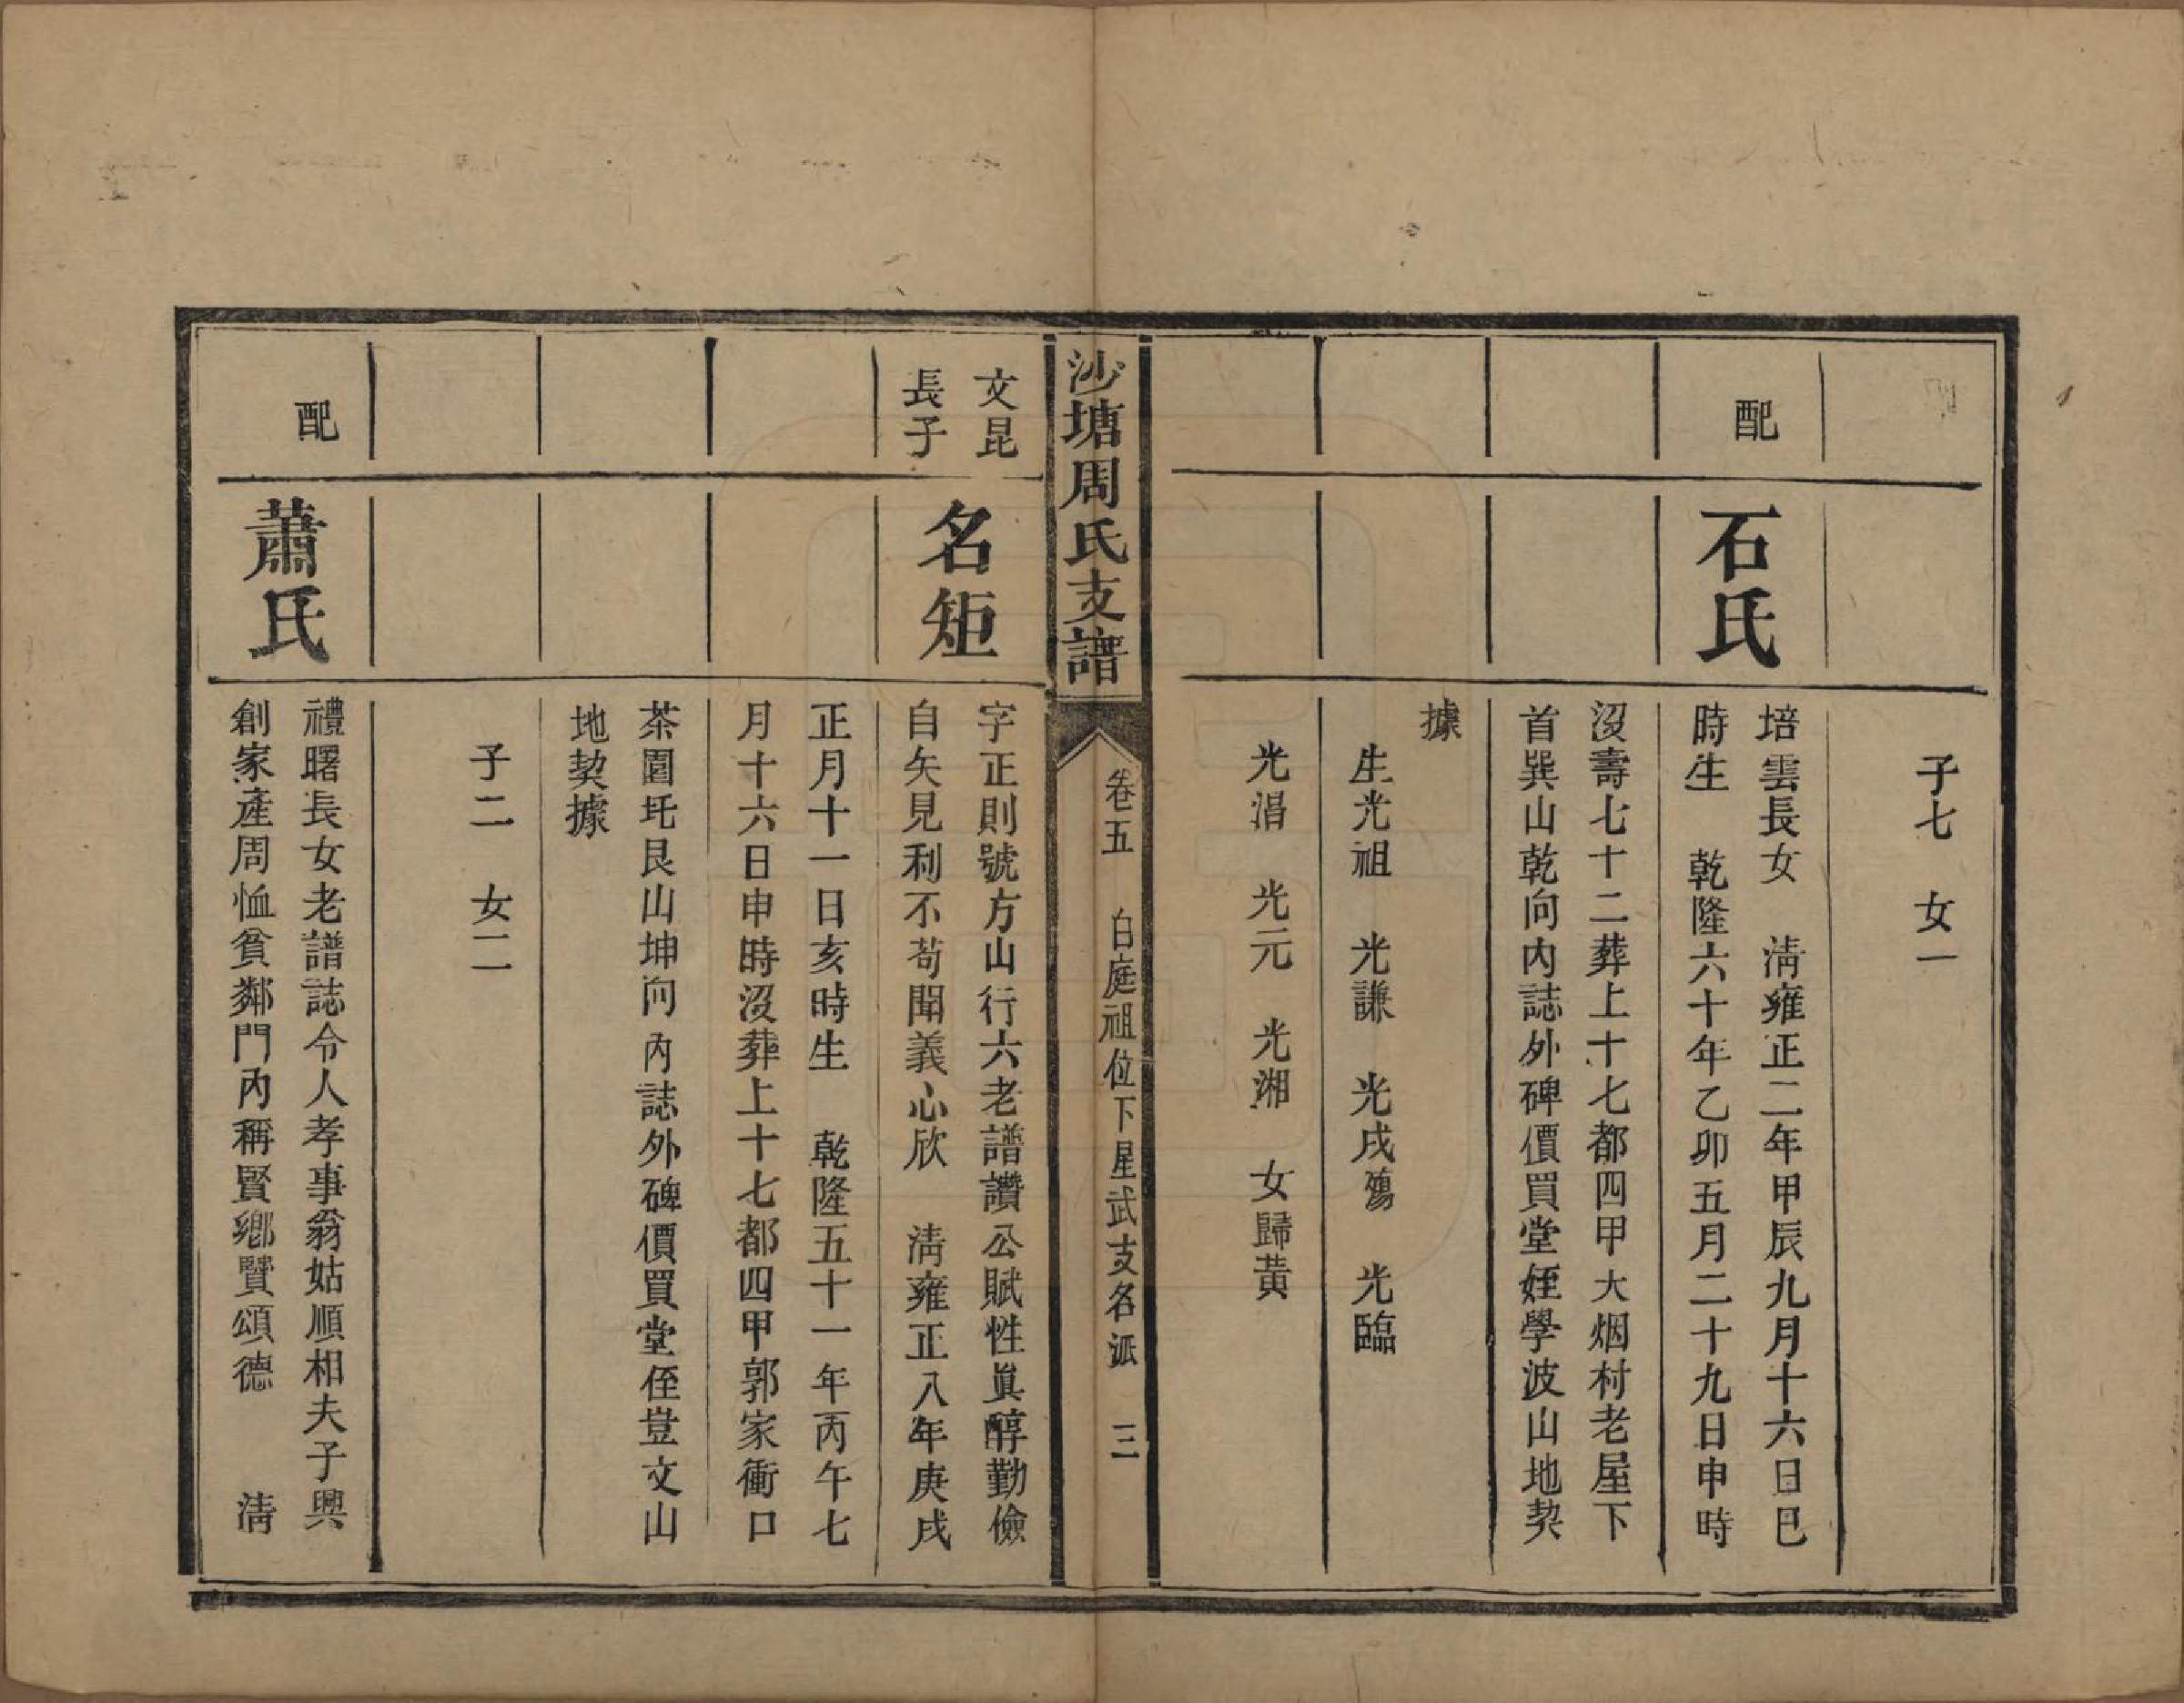 子七　女一
配
石氏
培雲長女　清雍正二年甲辰九月十六日巳
時生　乾隆六十年乙卯五月二十九日申時
沒壽七十二葬上十七都四甲大烟村老屋下
首巽山乾向內誌外碑價買堂姪學波山地契
據
生光祖　光謙　光戌殤　光臨
光湒　光元　光湘　女歸黃
沙塘周氏支譜
卷五　白庭祖位下星武支名派　三
文昆
長子
名矩
字正則號方山行六老譜讚公賦性眞醇勤儉
自矢見利不苟聞義心欣　清雍正八年庚戌
正月十一日亥時生　乾隆五十一年丙午七
月十六日申時沒葬上十七都四甲郭家衝口
茶園坵艮山坤向內誌外碑價買堂侄豈文山
地契據
子二　女二
配
蕭氏
禮曙長女老譜誌令人孝事翁姑順相夫子興
創家產周恤貧鄰門內稱賢鄉賢頌德　清